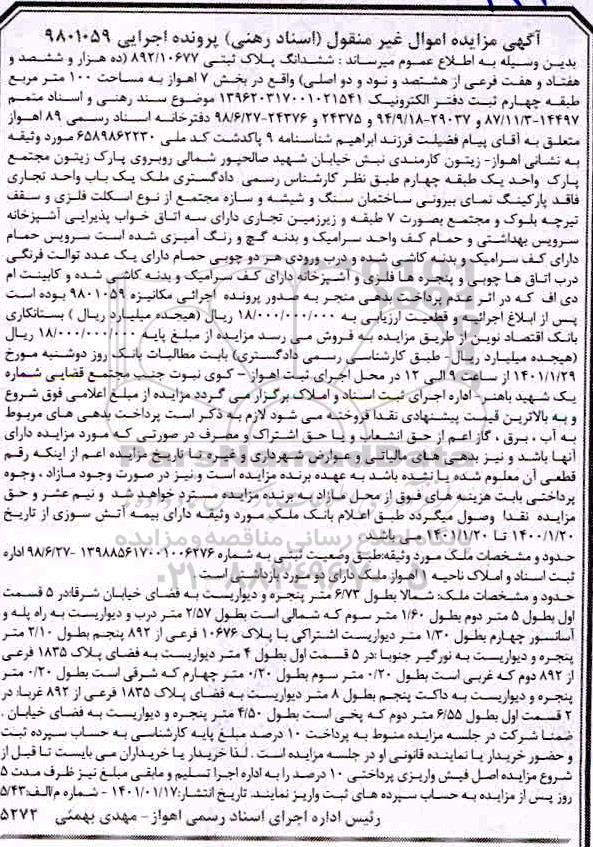 آگهی مزایده اموال غیر منقول (اسناد رهنی) پرونده اجرایی ۹۸۰۱۰۵۹
بدین وسیله به اطلاع عموم میرساند : ششدانگ پلاک ثبتی ۸۹۲/۱۰۶۷۷ (ده هزار و ششصد و
هفتاد و هفت فرعی از هشتصد و نود و دو اصلی) واقع در بخش ۷ اهواز به مساحت ۱۰۰ متر مربع
طبقه چهارم ثبت دفتر الکترونیک ۱۳۹۶۲۰۳۱۷۰۰۱۰۲۱۵۴۱ موضوع سند رهنی و اسناد متمم
۱۴۴۹۷-۸۷/۱۱/۳ و ۲۹۰۳۷-۹۴/۹/۱۸ و ۲۴۳۷۵ و ۲۴۳۷۶-۹۸/۶/۲۷ دفترخانه اسناد رسمی ۸۹ اهواز
متعلق به آقای پیام فضیلت فرزند ابراهیم شناسنامه ۹ پاکدشت کد ملی ۶۵۸۹۸۶۲۲۳۰ مورد وثیقه
به نشانی اهواز- زیتون کارمندی نبش خیابان شهید صالحپور شمالی روبروی پارک زیتون مجتمع
پارک واحد یک طبقه چهارم طبق نظر کارشناس رسمی دادگستری ملک یک باب واحد تجاری
فاقد پارکینگ نمای بیرونی ساختمان سنگ و شیشه و سازه مجتمع از نوع اسکلت فلزی و سقف
تیرچه بلوک و مجتمع بصورت ۷ طبقه و زیرزمین تجاری دارای سه اتاق خواب پذیرایی آشپزخانه
سرویس بهداشتی و حمام کف واحد سرامیک و بدنه گچ و رنگ آمیزی شده است سرویس حمام
دارای کف سرامیک و بدنه کاشی شده و درب ورودی هر دو چوبی حمام دارای یک عدد توالت فرنگی
درب اتاق ها چوبی و پنجره ها فلزی و آشپزخانه دارای کف سرامیک و بدنه کاشی شده و کابینت ام
دی اف که در اثر عدم پرداخت بدهی منجر به صدور پرونده اجرائی مکانیزه ۹۸۰۱۰۵۹ بوده است
پس از ابلاغ اجرائیه و قطعیت ارزیابی به ۱۸/۰۰۰/۰۰۰/۰۰۰ ریال (هیجده میلیارد ریال ) بستانکاری
بانک اقتصاد نوین از طریق مزایده به فروش می رسد مزایده از مبلغ پایه ۱۸/۰۰۰/۰۰۰/۰۰۰ ریال
(هیجده میلیارد ریال- طبق کارشناسی رسمی دادگستری) بابت مطالبات بانک روز دوشنبه مورخ
۱۴۰۱/۱/۲۹ از ساعت ۹ الی ۱۲ در محل اجرای ثبت اهواز - کوی نبوت جنب مجتمع قضایی شماره
یک شهید باهنر- اداره اجرای ثبت اسناد و املاک برگزار می گردد مزایده از مبلغ اعلامی فوق شروع
و به بالاترین قیمت پیشنهادی نقدا فروخته می شود لازم به ذکر است پرداخت بدهی های مربوط
به آب ، برق ، گاز اعم از حق انشعاب و یا حق اشتراک و مصرف در صورتی که مورد مزایده دارای
آنها باشد و نیز بدهی های مالیاتی و عوارض شهرداری و غیره تا تاریخ مزایده اعم از اینکه رقم
قطعی آن معلوم شده یا نشده باشد به عهده برنده مزایده است و نیز در صورت وجود مازاد ، وجوه
پرداختی بابت هزینه های فوق از محل مازاد به برنده مزایده مسترد خواهد شد و نیم عشر و حق
مزایده نقدا وصول میگردد طبق اعلام بانک ملک مورد وثیقه دارای بیمه آتش سوزی از تاریخ
۱۴۰۰/۱/۲۰ تا ۱۴۰۱/۱/۲۰ می باشد
حدود و مشخصات ملک مورد وثیقه:طبق وضعیت ثبتی به شماره ۱۳۹۸۸۵۶۱۷۰۰۱۰۰۶۲۷۶ -۹۸/۶/۲۷ اداره
ثبت اسناد و املاک ناحیه ۱ اهواز ملک دارای دو مورد بازداشتی است
حدود و مشخصات ملک: شمالا بطول ۶/۷۳ متر پنجره و دیواریست به فضای خیابان شرقا:در ۵ قسمت
اول بطول ۵ متر دوم بطول ۱/۶۰ متر سوم که شمالی است بطول ۲/۵۷ متر درب و دیواریست به راه پله و
آسانسور چهارم بطول ۱/۳۰ متر دیواریست اشتراکی با پلاک ۱۰۶۷۶ فرعی از ۸۹۲ پنجم بطول ۲/۱۰ متر
پنجره و دیواریست به نورگیر جنوبا :در ۵ قسمت اول بطول ۴ متر دیواریست به فضای پلاک ۱۸۳۵ فرعی
از ۸۹۲ دوم که غربی است بطول ۰/۲۰ متر سوم بطول ۰/۲۰ متر چهارم که شرقی است بطول ۰/۲۰ متر
پنجره و دیواریست به داکت پنجم بطول ۸ متر دیواریست به فضای پلاک ۱۸۳۵ فرعی از ۸۹۲ غربا: در
۲ قسمت اول بطول ۶/۵۵ متر دوم که پخی است بطول ۴/۵۰ متر پنجره و دیواریست به فضای خیابان .
ضمنا شرکت در جلسه مزایده منوط به پرداخت ۱۰ درصد مبلغ پایه کارشناسی به حساب سپرده ثبت
و حضور خریدار یا نماینده قانونی او در جلسه مزایده است . لذا خریدار یا خریداران می بایست تا قبل از
شروع مزایده اصل فیش واریزی پرداختی ۱۰ درصد را به اداره اجرا تسلیم و مابقی مبلغ نیز ظرف مدت ۵
روز پس از مزایده به حساب سپرده های ثبت واریز نمایند. تاریخ انتشار:۱۴۰۱/۰۱/۱۷ - شماره م/الف:۵/۴۳
رئیس اداره اجرای اسناد رسمی اهواز- مهدی بهمئی ۵۲۷۲